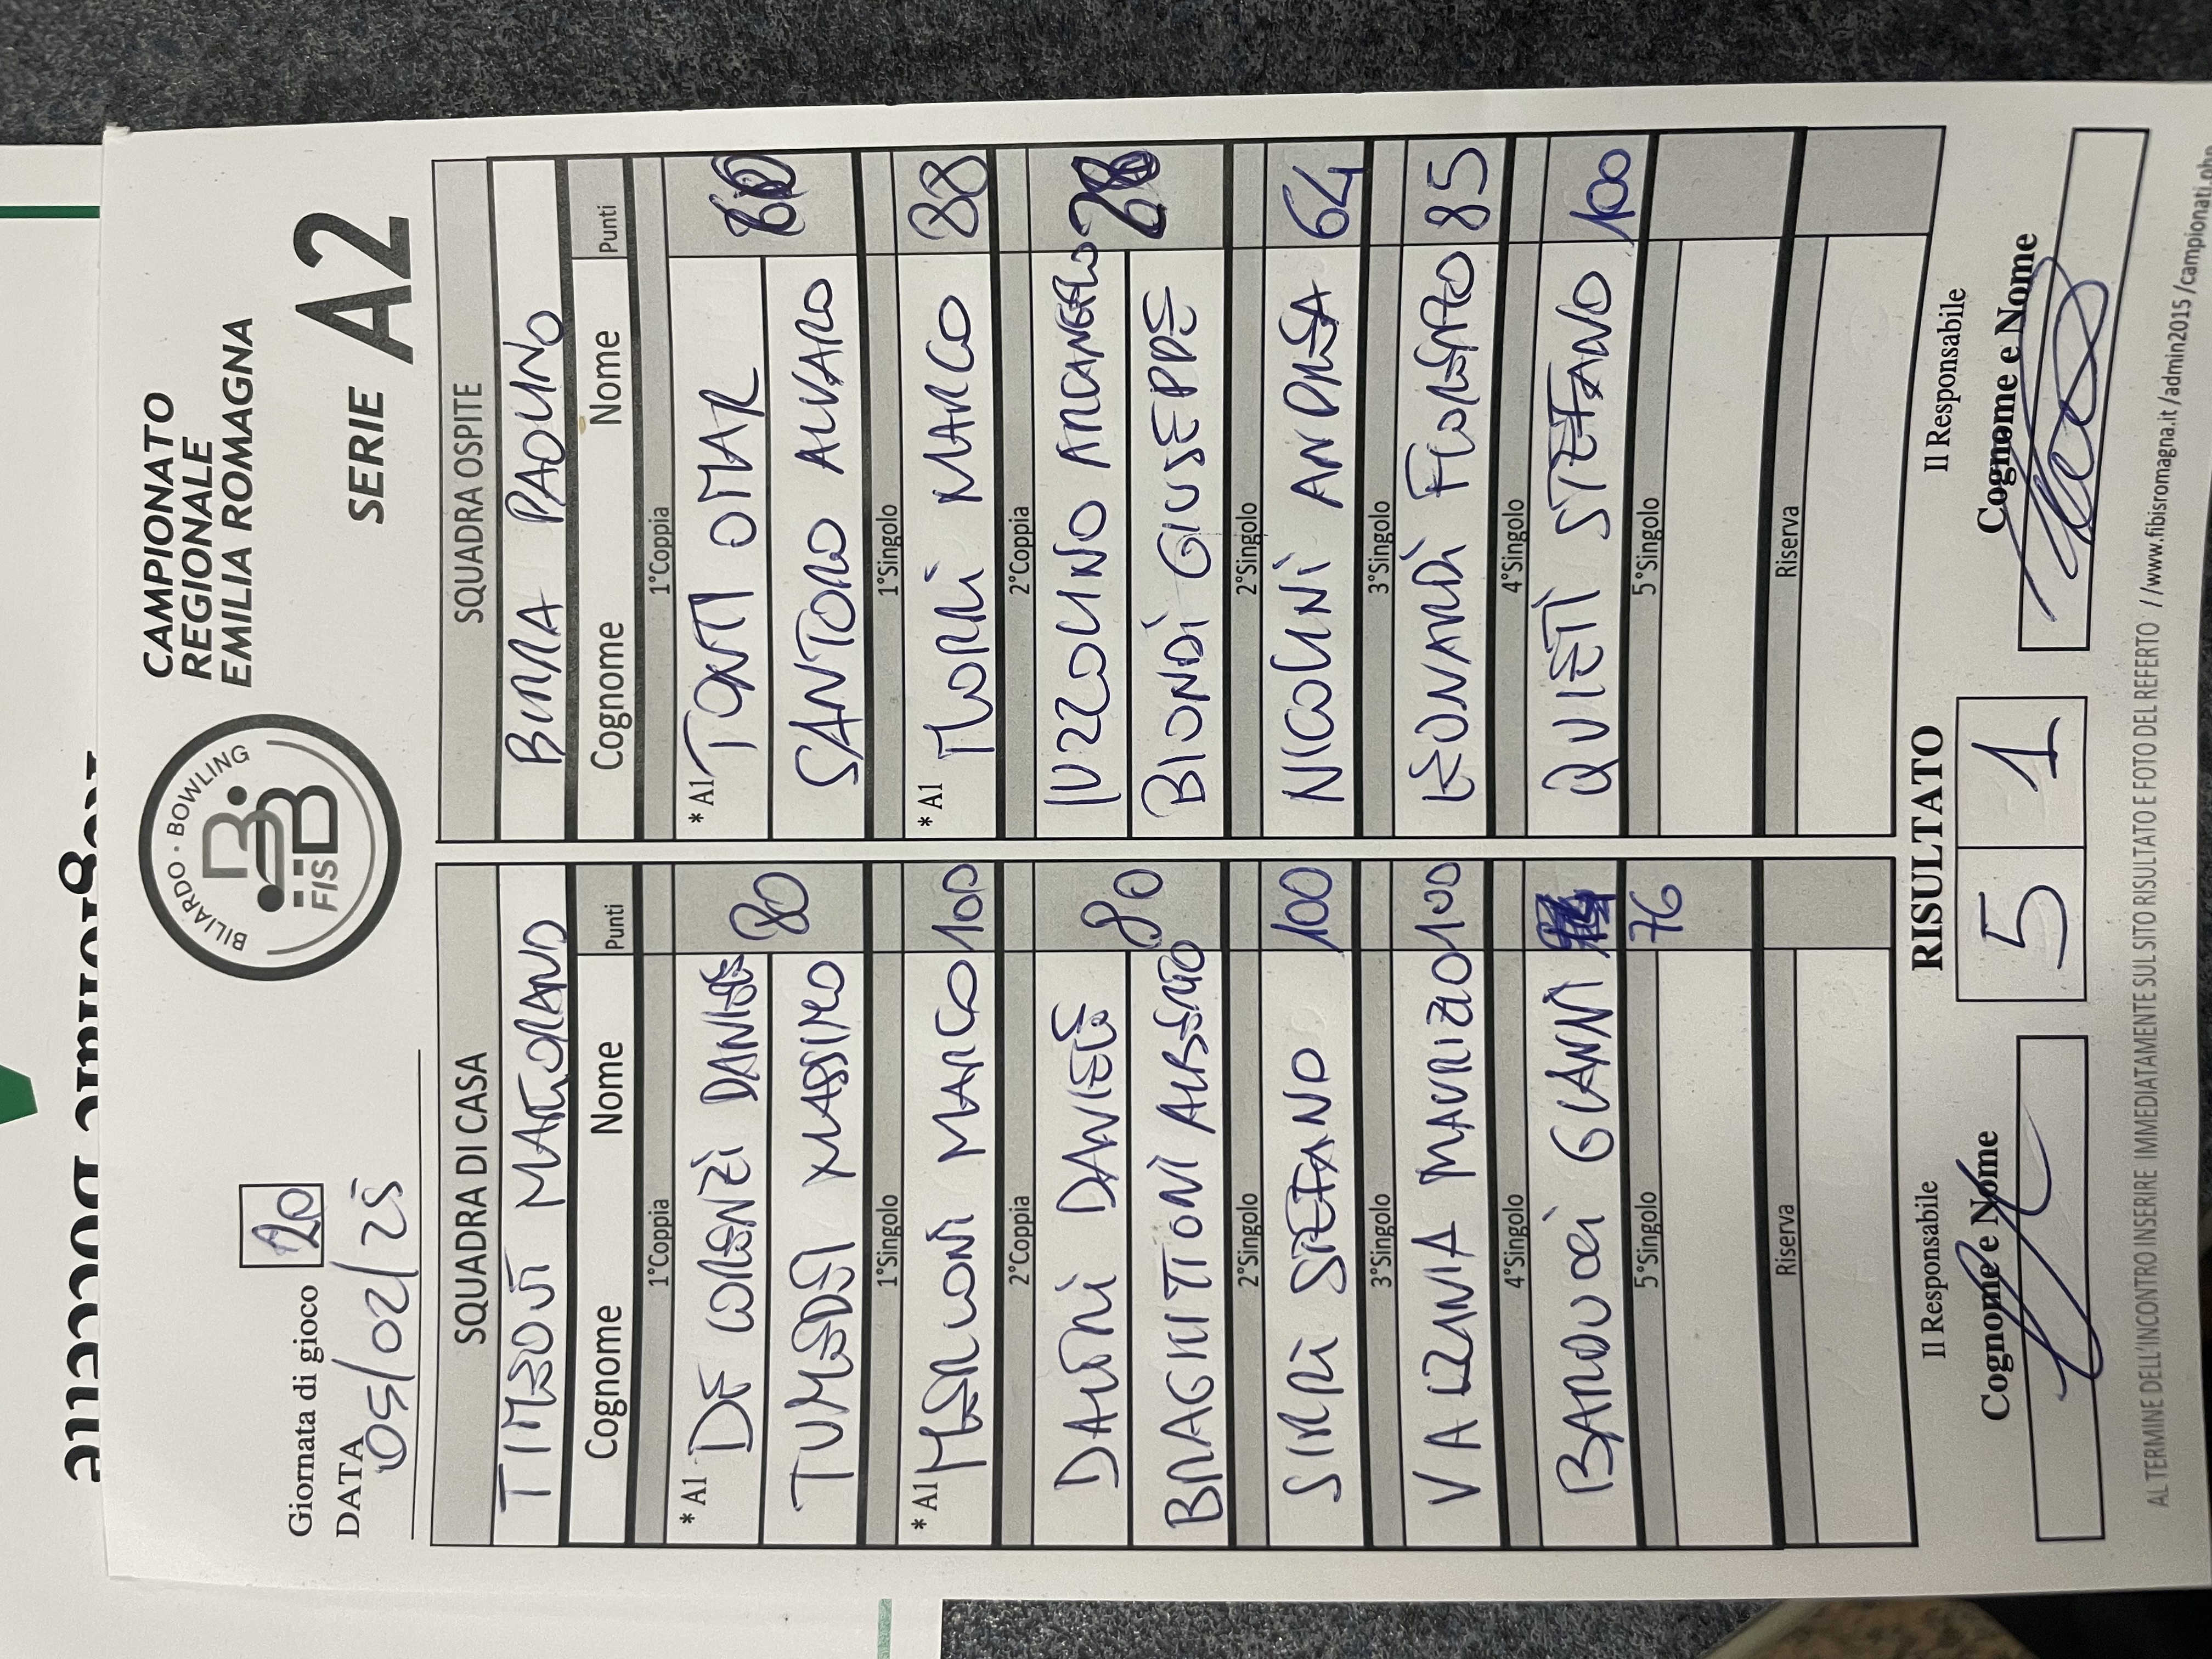 BILIARDO · BOWLING
FISBB
CAMPIONATO
REGIONALE
EMILIA ROMAGNA
SERIE A2
Giornata di gioco 20
DATA 05/02/25
SQUADRA DI CASA
TIMEOUT MARTORANO
Cognome Nome Punti
1°Coppia
* A1 DE LORENZI DANIELE 80
TUMEDEI MASSIMO
1°Singolo
* A1 MERLONI MARCO 100
2°Coppia
DALTRI DAVIDE 80
BRAGHITTONI ALESSIO
2°Singolo
SIRRI STEFANO 100
3°Singolo
VALZANIA MAURIZIO 100
4°Singolo
BARDUCCI GIANNI
5°Singolo 76
Riserva
SQUADRA OSPITE
BIRRA PAOLINO
Cognome Nome Punti
1°Coppia
* A1 TONTI OMAR
SANTORO ALVARO
1°Singolo
* A1 MORRI MARCO 88
2°Coppia
IUZZOLINO ARCANGELO
BIONDI GIUSEPPE
2°Singolo
NICOLINI ANDREA 64
3°Singolo
LEONARDI FIORENZO 85
4°Singolo
QUIETI STEFANO 100
5°Singolo
Riserva
RISULTATO
5 1
Il Responsabile
Cognome e Nome
Il Responsabile
Cognome e Nome
AL TERMINE DELL'INCONTRO INSERIRE IMMEDIATAMENTE SUL SITO RISULTATO E FOTO DEL REFERTO //www.fibisromagna.it/admin2015/campionati.php